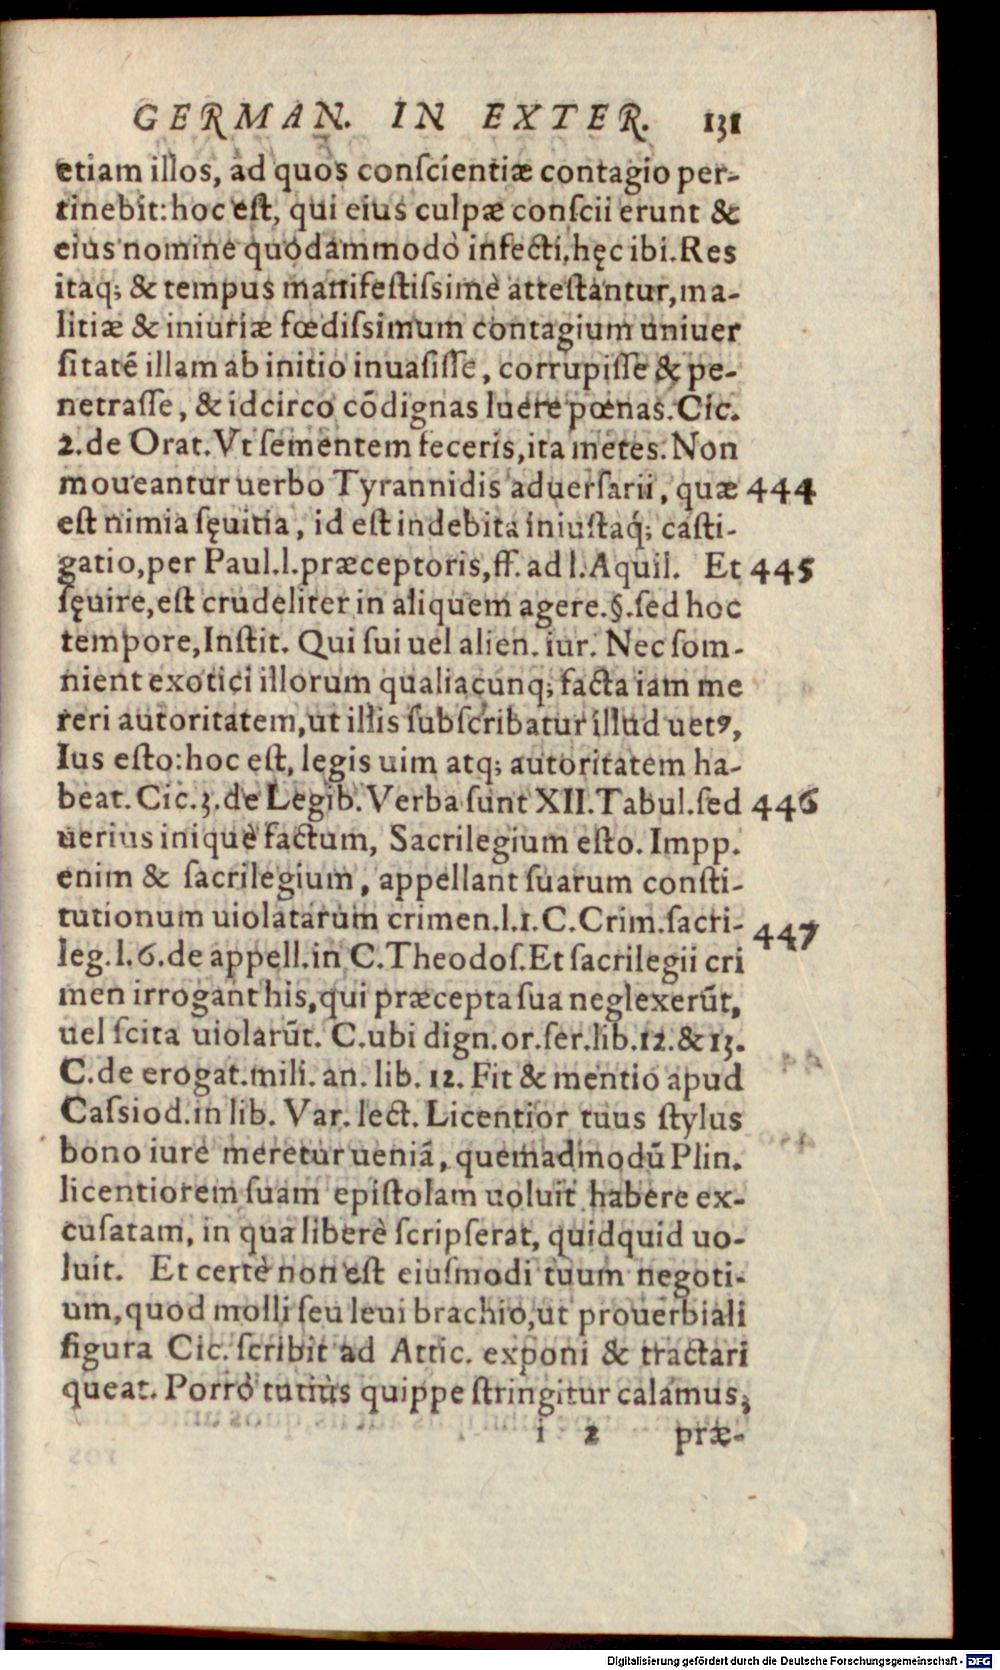 GERMAN. IN EXTER. 131
etiam illos, ad quos conſcientiæ contagio per-
tinebit: hoc eſt, qui eius culpæ conſcii erunt &
eius nomine quodammodò infecti, hęc ibi. Res
itaq; & tempus manifeſtiſsimè atteſtantur, ma-
litiæ & iniuriæ fœdiſsimum contagium uniuer
ſitatẽ illam ab initio inuaſiſſe, corrupiſſe & pe-
netraſſe, & idcirco cõdignas luere pœnas. Cic.
2. de Orat. Vt ſementem feceris, ita metes. Non
moueantur uerbo Tyrannidis aduerſarii, quæ 444
eſt nimia ſęuitia, id eſt indebita iniuſtaq́; caſti-
gatio, per Paul. l. præceptoris, ff. ad l. Aquil. Et 445
ſęuire, eſt crudeliter in aliquem agere. §. ſed hoc
tempore, Inſtit. Qui ſui uel alien. iur. Nec ſom-
nient exotici illorum qualiacunq; facta iam me
reri autoritatem, ut illis ſubſcribatur illud uetꝰ,
Ius eſto: hoc eſt, legis uim atq; autoritatem ha-
beat. Cic. 3. de Legib. Verba ſunt XII. Tabul. ſed 446
uerius iniquè factum, Sacrilegium eſto. Impp.
enim & ſacrilegium, appellant ſuarum conſti-
tutionum uiolatarum crimen. l. 1. C. Crim. ſacri- 447
leg. l. 6. de appell. in C. Theodoſ. Et ſacrilegii cri
men irrogant his, qui præcepta ſua neglexerũt,
uel ſcita uiolarũt. C. ubi dign. or. ſer. lib. 12. & 13.
C. de erogat. mili. an. lib. 12. Fit & mentio apud
Caſsiod. in lib. Var. lect. Licentior tuus ſtylus
bono iure meretur ueniã, quemadmodũ Plin.
licentiorem ſuam epiſtolam uoluit habere ex-
cuſatam, in qua liberè ſcripſerat, quidquid uo-
luit. Et certè non eſt eiuſmodi tuum negoti-
um, quod molli ſeu leui brachio, ut prouerbiali
figura Cic. ſcribit ad Attic. exponi & tractari
queat. Porrò tutius quippe ſtringitur calamus,
i 2 præ-
Digitalisierung gefördert durch die Deutsche Forschungsgemeinschaft - DFG